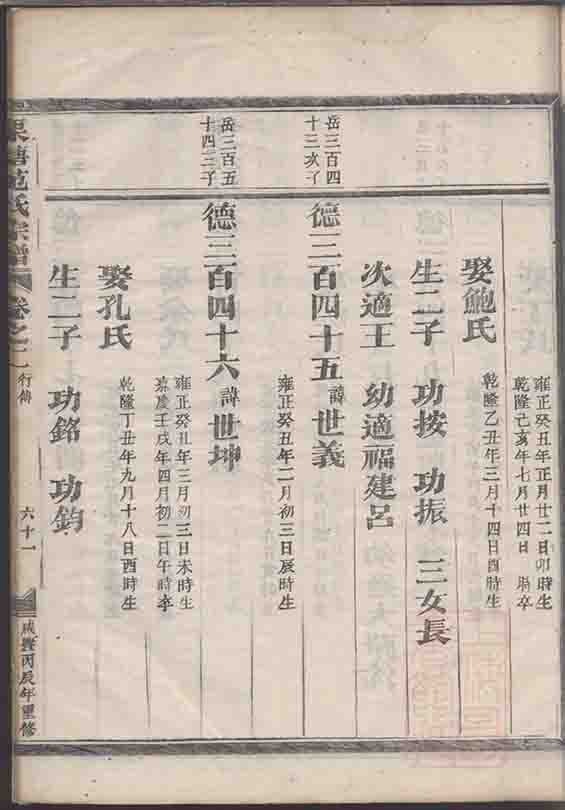 雍正癸丑年正月廿二日卯時生
乾隆己亥年七月廿四日 時卒
娶鮑氏
乾隆乙丑年三月十四日酉時生
生二子 功按 功振 三女長
次適王 幼適福建呂
岳三百四
十三次子
德三百四十五諱世義
雍正癸丑年二月初三日辰時生
岳三百五
十四三子
德三百四十六諱世坤
雍正癸丑年三月初三日未時生
嘉慶壬戌年四月初二日午時卒
娶孔氏
乾隆丁丑年九月十八日酉時生
生二子 功銘 功鈞
塘范氏宗譜
卷之二
行傳
六十一
咸豐丙辰年重修